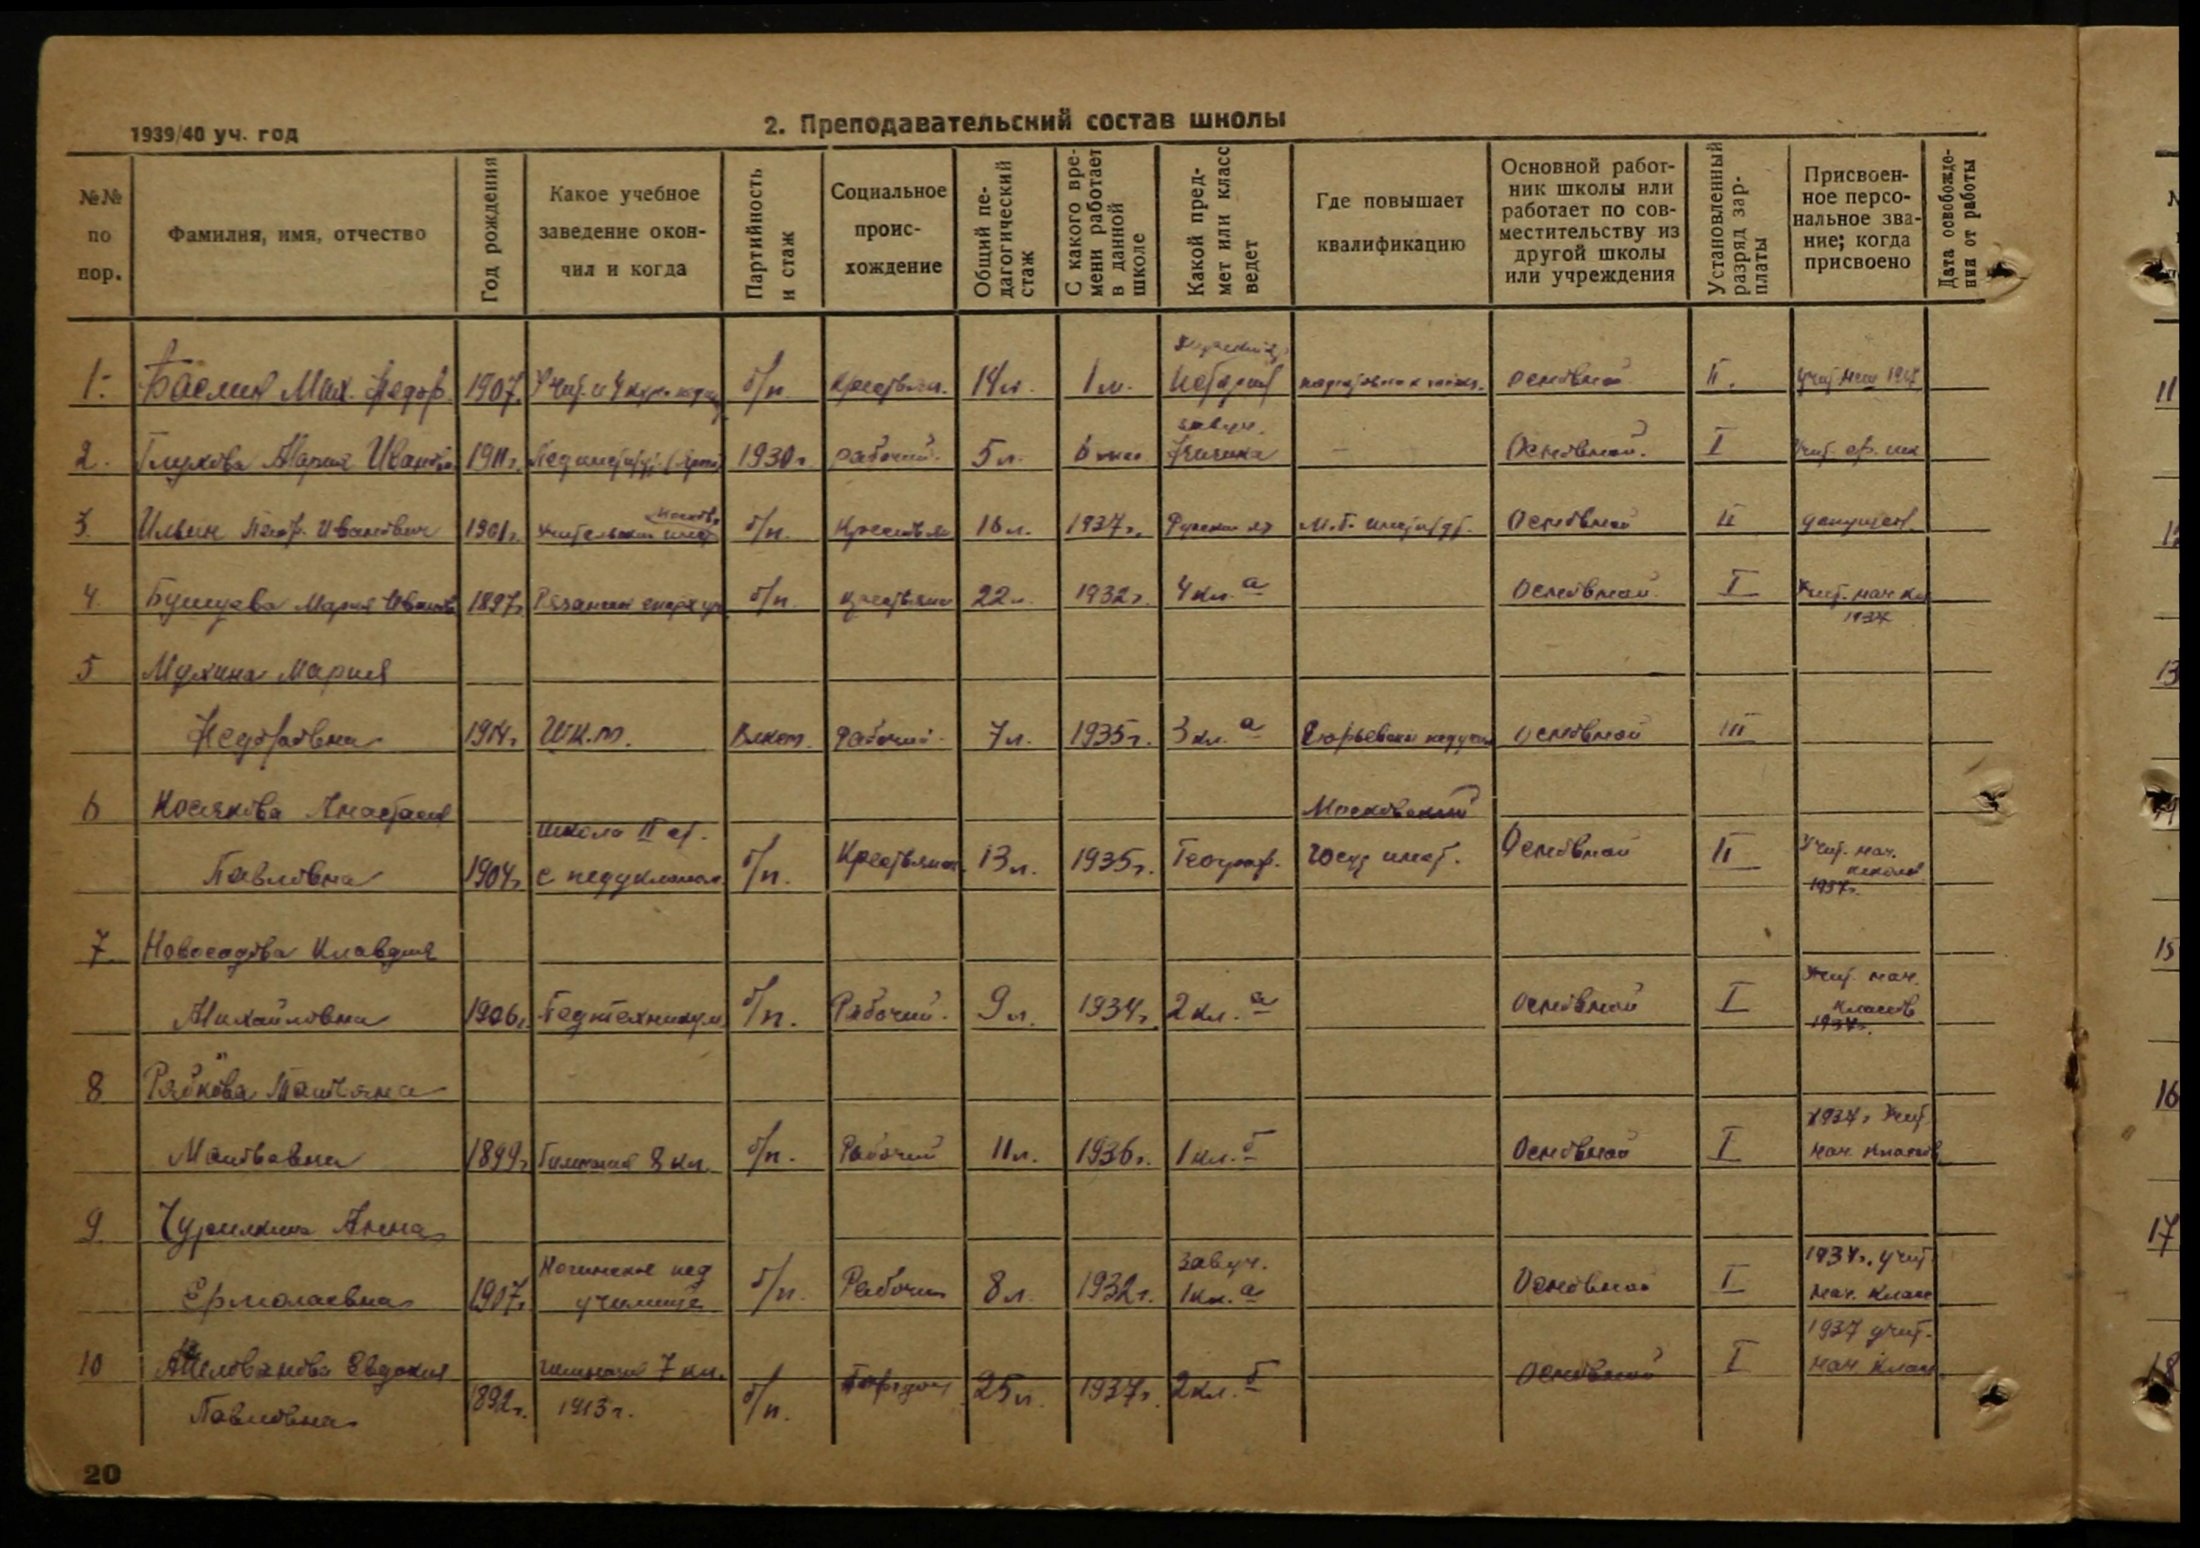 1939/40 уч. год
2. Преподавательский состав школы
№№ по пор.
Фамилия, имя, отчество
Год рождения
Какое учебное заведение окончил и когда
Партийность и стаж
Социальное происхождение
Общий педагогический стаж
С какого времени работает в данной школе
Какой предмет или класс ведет
Где повышает квалификацию
Основной работник школы или работает по совместительству из другой школы или учреждения
Установленный разряд зарплаты
Присвоенное персональное звание; когда присвоено
Дата освобождения от работы
1. Мих. Федор. 1907 б/п. 14 л. 1 м. основной II.
2. Глухова Мария Иванов 1911 г. 1930 г. рабочий. 5 л. завуч. физика — Основной. I Учит. ср. шк
3. Ильин Петр. Иванович 1901 г. Учительский инст б/п. Крестьян 16 л. 1937 г. Русский яз Основной II
4. Мария Иванов 1897 г. Рязанское б/п. крестьян 22 л. 1932 г. 4 кл. а Основной. I Учит. нач кл
1937
5 Мухина Мария
Федоровна 1914 г. Ш.К.М. Влксм. рабочий. 7 л. 1935 г. 3 кл. а основной III
6 Анастасия Московский
школа II ст.
Павловна 1904 г. с педуклоном б/п. Крестьян 13 л. 1935 г. Географ. инст. Основной II Учит. нач.
1937 г.
7. Новосадова Клавдия
Михайловна 1906 г. Педтехникум б/п. Рабочий. 9 л. 1934 г. 2 кл. а Основной I Учит. нач.
классов
1937 г.
8 Рябкова Татьяна
Матвевна 1899 г. Гимназия 8 кл. б/п. Рабочий 11 л. 1936 г. 1 кл. б Основной I 1937 г. Учит.
нач. классов
9. Анна
Ермолаевна 1907 г. Ногинское пед
училище б/п. Рабочий 8 л. 1932 г. завуч.
1 кл. а Основной I 1937 г. учит.
нач. клас
10 Евдокия гимназия 7 кл. Основной I 1937 учит.
нач. клас
Павловна 1892 г. 1913 г. б/п. 25 л. 1937 г. 2 кл. б
20
11
13
15
16
17
18